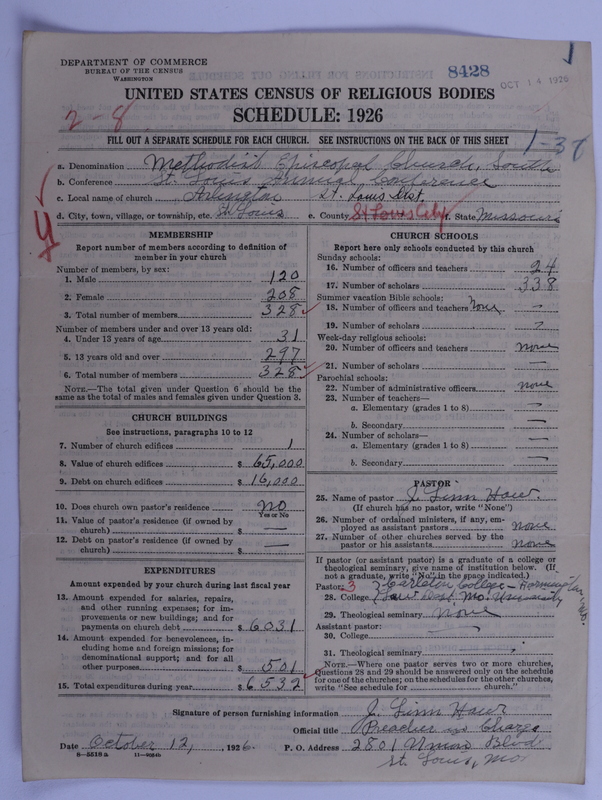 DEPARTMENT OF COMMERCE
BUREAU OF THE CENSUS
WASHINGTON
8428
OCT 14 1926
UNITED STATES CENSUS OF RELIGIOUS BODIES
SCHEDULE: 1926
2-8
FILL OUT A SEPARATE SCHEDULE FOR EACH CHURCH. SEE INSTRUCTIONS ON THE BACK OF THIS SHEET
1-37
a. Denomination Methodist Episcopal Church, South
b. Conference St. Louis Annual Conference
c. Local name of church Arlington St. Louis Dist.
d. City, town, village, or township, etc. St. Louis e. County St Louis City f. State Missouri
MEMBERSHIP
Report number of members according to definition of
member in your church
Number of members, by sex:
1. Male 120
2. Female 208
3. Total number of members 328
Number of members under and over 13 years old:
4. Under 13 years of age 31
5. 13 years old and over 297
6. Total number of members 328
NOTE.—The total given under Question 6 should be the
same as the total of males and females given under Question 3.
CHURCH BUILDINGS
See instructions, paragraphs 10 to 12
7. Number of church edifices 1
8. Value of church edifices $ 65,000
9. Debt on church edifices $ 16,000
10. Does church own pastor's residence no
Yes or No
11. Value of pastor's residence (if owned by
church) $ —
12. Debt on pastor's residence (if owned by
church) $ —
EXPENDITURES
Amount expended by your church during last fiscal year
13. Amount expended for salaries, repairs,
and other running expenses; for im-
provements or new buildings; and for
payments on church debt $ 6031
14. Amount expended for benevolences, in-
cluding home and foreign missions; for
denominational support; and for all
other purposes $ 501
15. Total expenditures during year $ 6532
CHURCH SCHOOLS
Report here only schools conducted by this church
Sunday schools:
16. Number of officers and teachers 24
17. Number of scholars 338
Summer vacation Bible schools:
18. Number of officers and teachers None —
19. Number of scholars
Week-day religious schools:
20. Number of officers and teachers none
21. Number of scholars —
Parochial schools:
22. Number of administrative officers none
23. Number of teachers—
a. Elementary (grades 1 to 8) —
b. Secondary —
24. Number of scholars—
a. Elementary (grades 1 to 8) —
b. Secondary —
PASTOR
25. Name of pastor J. Linn Hawr.
(If church has no pastor, write "None")
26. Number of ordained ministers, if any, em-
ployed as assistant pastors none
27. Number of other churches served by the
pastor or his assistants none
If pastor (or assistant pastor) is a graduate of a college or
theological seminary, give name of institution below. (If
not a graduate, write "No" in the space indicated.)
Pastor: 3 Carleton College - Farmington, Mo.
28. College Law Dept. Mo. University
29. Theological seminary None
Assistant pastor:
30. College —
31. Theological seminary
NOTE.—Where one pastor serves two or more churches,
Questions 28 and 29 should be answered only on the schedule
for one of the churches; on the schedules for the other churches,
write "See schedule for church."
Signature of person furnishing information J. Linn Hawr
Official title Preacher in Charge
Date October 12, 1926. P. O. Address 2801 Union Blvd
St. Louis, Mo.
8—5518a 11—9024b